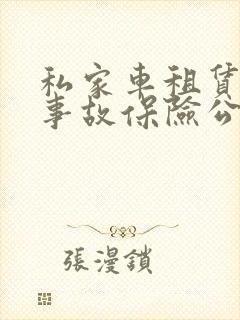 私家車租賃
事故保險公
張漫鎖